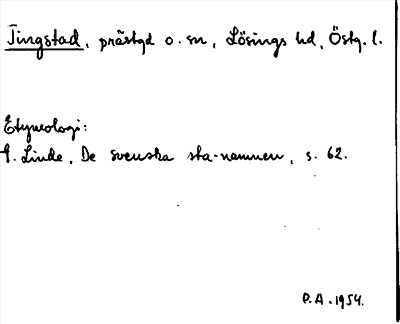 Tingstad, prästgd o. sn, Lösings hd, Östg. l.
Etymologi:
G. Linde, De svenska sta-namnen, s. 62.
P.A. 1954.